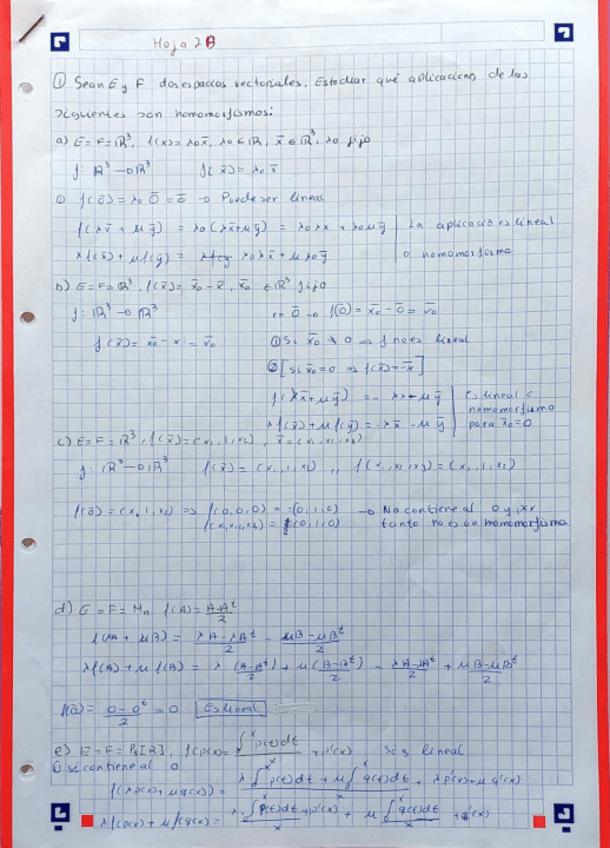 Hoja 2B
① Sean E y F dos espacios vectoriales. Estudiar qué aplicaciones de las
siguientes son homomorfismos:
a) E=F=ℝ³, f(x)=λ₀x̄, λ₀∈ℝ, x̄∈ℝ³, λ₀ fijo
f: ℝ³→ℝ³ f(x̄)=λ₀x̄
① f(ō)=λ₀ō=ō → Puede ser lineal
f(λx̄+μȳ) = λ₀(λx̄+μȳ) = λ₀λx̄ + λ₀μȳ | La aplicación es lineal
λf(x̄)+μf(ȳ)= λ₀λx̄+μλ₀ȳ | o homomorfismo
b) E=F=ℝ³, f(x̄)=x̄₀-x̄, x̄₀∈ℝ³ fijo
f: ℝ³→ℝ³ en ō → f(ō)=x̄₀-ō=x̄₀
f(x̄)=x̄₀-x=v̄₀ ① Si x̄₀≠0 ⇒ f no es lineal
② [si x̄₀=0 ⇒ f(x̄)=-x̄]
f(λx̄+μȳ) = -λx-μȳ | Es lineal o
λf(x̄)+μf(ȳ)=-λx̄-μȳ | homomorfismo para x̄₀=0
c) E=F=ℝ³, f(x̄)=(x₁,1,x₂), x̄=(x₁,x₂,x₃)
f: ℝ³→ℝ³ f(x̄)=(x₁,1,x₂) ,, f(x₁,x₂,x₃)=(x₁,1,x₂)
f(ō)=(x₁,1,x₂) ⇒ f(0,0,0)=(0,1,0) → No contiene al 0 y por
(x₁,x₂,x₃)=(0,1,0) tanto no es un homomorfismo
d) E=F=Mₙ f(A)=(A-Aᵗ)/2
f(λA+μB) = (λA-λAᵗ)/2 - (μB-μBᵗ)/2
λf(A)+μf(B) = λ(A-Aᵗ)/2 + μ(B-Bᵗ)/2 = (λA-λAᵗ)/2 + (μB-μBᵗ)/2
f(ō)=(0-0ᵗ)/2=0 Es lineal
e) E=F=P₃[ℝ], f(p(x))=∫₀ˣp(t)dt/x +p'(x) Si es lineal
① si contiene al 0
f(λp(x)+μq(x)) = (λ∫₀ˣp(t)dt+μ∫₀ˣq(t)dt)/x + λp'(x)+μq'(x)
λf(p(x))+μf(q(x))= λ∫₀ˣp(t)dt/x +p'(x) + μ∫₀ˣq(t)dt/x +q'(x)